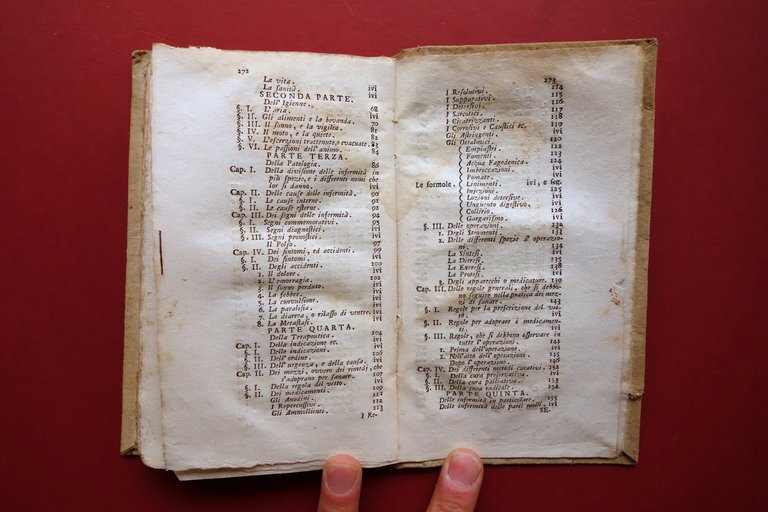 272
La vita. ivi
La sanità. ivi
SECONDA PARTE.
Dell'Igiene.
§. I. L'aria. 68
§. II. Gli alimenti e la bevanda. 70
§. III. Il sonno, e la vigilia. 81
§. IV. Il moto, e la quiete. 82
§. V. L'escrezioni trattenute, o evacuate.
§. VI. Le passioni dell'animo. 84
PARTE TERZA.
Della Patologia. 86
Cap. I. Della divisione delle infermità in
più spezie, e i differenti nomi che
lor si danno. ivi
Cap. II. Delle cause delle infermità. 90
§. I. Le cause interne. 91
§. II. Le cause esterne. 92
Cap. III. Dei segni delle infermità. 94
§. I. Segni commemorativi. 95
§. II. Segni diagnostici. ivi
§. III. Segni pronostici. ivi
Il Polso. 97
Cap. IV. Dei sintomi, ed accidenti. 99
§. I. Dei sintomi. ivi
§. II. Degli accidenti. 100
1. Il dolore. ivi
2. L'emorragia. 102
3. Il sonno perduto. ivi
4. La febbre. ivi
5. La convulsione. ivi
6. La paralisia. ivi
7. La diarrea, o rilasso di ventre. ivi
8. La Metastasi. ivi
PARTE QUARTA.
Della Terapeutica. 104
Cap. I. Della indicazione ec. ivi
§. I. Delle indicazioni. ivi
§. II. Dell'ordine. 106
§. III. Dell'urgenza, e della causa. ivi
Cap. II. Dei mezzi, ovvero dei rimedj, che
s'adoprano per sanare. 107
§. I. Della regola del vitto. ivi
§. II. Dei medicamenti. 110
Gli Anodini. 111
I Repercussivi. 112
Gli Ammollienti. 113
I Re-
273
I Resolutivi. 114
I Suppurativi. 115
I Detersivi. 116
I Sarcotici. 117
I Cicatrizzanti. 118
I Corrosivi e Caustici ec. ivi
Gli Astringenti. 120
Gli Oftalmici. 122
Empiastri. 123
Fomenti. 124
Acqua Fagedenica. ivi
Imbroccazioni. ivi
Pomate. ivi
Le formole. Linimenti ivi, e seg.
Injezione. 125
Lozioni detersive. 126
Unguento digestivo. ivi
Collirio. 126
Gargarismo. ivi
§. III. Delle operazioni. 134
1. Degli Strumenti. 131
2. Delle differenti spezie d'operazio-
ni. 134
La Sintesi. ivi
La Dieresi. ivi
La Exeresi. ivi
La Protesi. ivi
3. Degli apparecchi o medicature. 139
Cap. III. Delle regole generali, che si debbo-
no seguire nella pratica dei mez-
zi di sanare. 143
§. I. Regole per la prescrizione del vit-
to. ivi
§. II. Regole per adoprare i medicamen-
ti. ivi
§. III. Regole, che si debbono osservare in
tutte l'operazioni. 144
1. Prima dell'operazione. ivi
2. Nell'atto dell'operazione. 145
Dopo l'operazione. 146
Cap. IV. Dei differenti metodi curativi. 152
§. I. Della cura preservativa. 151
§. II. Della cura palliativa. 153
§. III. Della cura radicale. 154
PARTE QUINTA.
Delle infermità in particolare. 155
Delle infermità delle parti molli. ivi
SE-